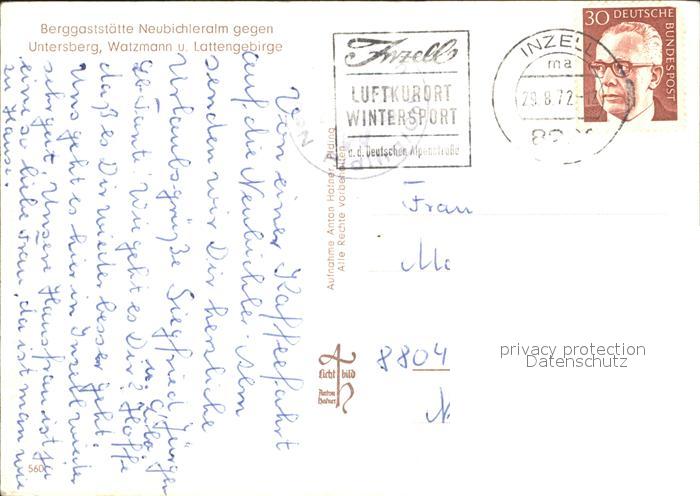 Berggaststätte Neubichleralm gegen
Untersberg, Watzmann u. Lattengebirge
Inzell
LUFTKURORT
WINTERSPORT
a. d. Deutschen Alpenstraße
INZELL
29.8.72
30 DEUTSCHE
BUNDESPOST
Von einer Kaffeefahrt
auf die Neubichler Alm
senden wir Dir herzliche
Urlaubsgrüße Siegfried, Jürgen
u. Lilo
Lb. Tanti! Wie geht es Dir? Hoffe
daß es Dir wieder besser geht.
Uns geht es hier in Inzell wieder
sehr gut. Unsere Hausfrau ist ja
eine so liebe Frau, da ist man wie
zu Hause.
Aufnahme Anton Hafner, Piding
Alle Rechte vorbehalten
Licht bild
Anton
Hafner
Frau
8804
privacy protection
Datenschutz
560